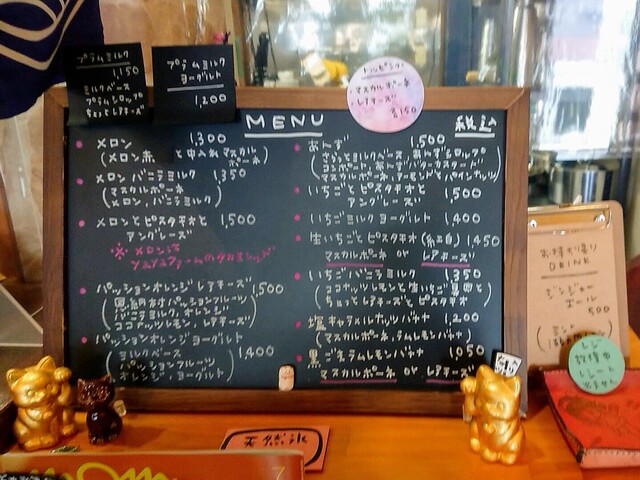 プラムミルク
1,150
ミルクベース
プラムシロップ
ちょっとレアチーズ
プラムミルク
ヨーグルト
1,200
トッピング
・マスカルポーネ
・レアチーズ
各150
MENU
税込
メロン 1,300
(メロン赤 と中入れマスカルポーネ)
メロンバニラミルク 1,350
(マスカルポーネ
(メロン,バニラミルク)
メロンとピスタチオと 1,500
アングレーズ
※メロンは
パッションオレンジレアチーズ 1,500
パッションフルーツ
バニラミルク,オレンジ
ココナッツミルク,レアチーズ)
パッションオレンジヨーグルト
1,400
(ミルクベース
パッションフルーツ
オレンジ,ヨーグルト)
あんず 1,500
マスカルポーネ,アーモンドとパインナッツ
いちごとピスタチオと 1,500
アングレーズ
いちごミルクヨーグルト 1,400
生いちごとピスタチオ(紅白) 1,450
マスカルポーネ or レアチーズ
いちごバニラミルク 1,350
(ココナッツミルクと生いちご果肉と
ちょっとレアチーズとピスタチオ)
塩キャラメルナッツバナナ 1,200
(マスカルポーネ,ラムレモンバナナ)
黒ごまラムレモンバナナ 1,050
マスカルポーネ or レアチーズ
天然氷
お持ち帰り
DRINK
ジンジャー
エール
500
レジ
故障中
レシート
出ません